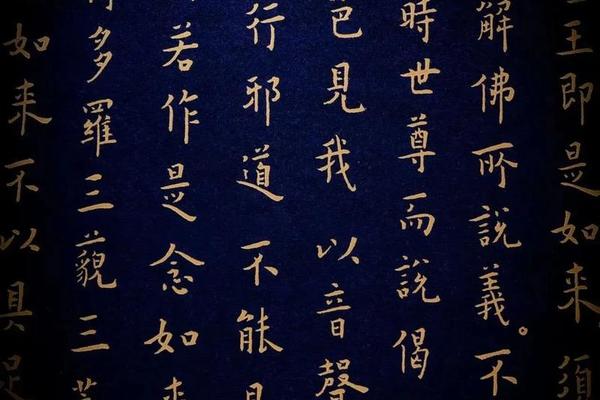 王即是如来須
解佛所說義。不
時世尊而說偈
色見我以音聲
行邪道不能見
若作是念如来
多羅三藐三菩
如来不以具足